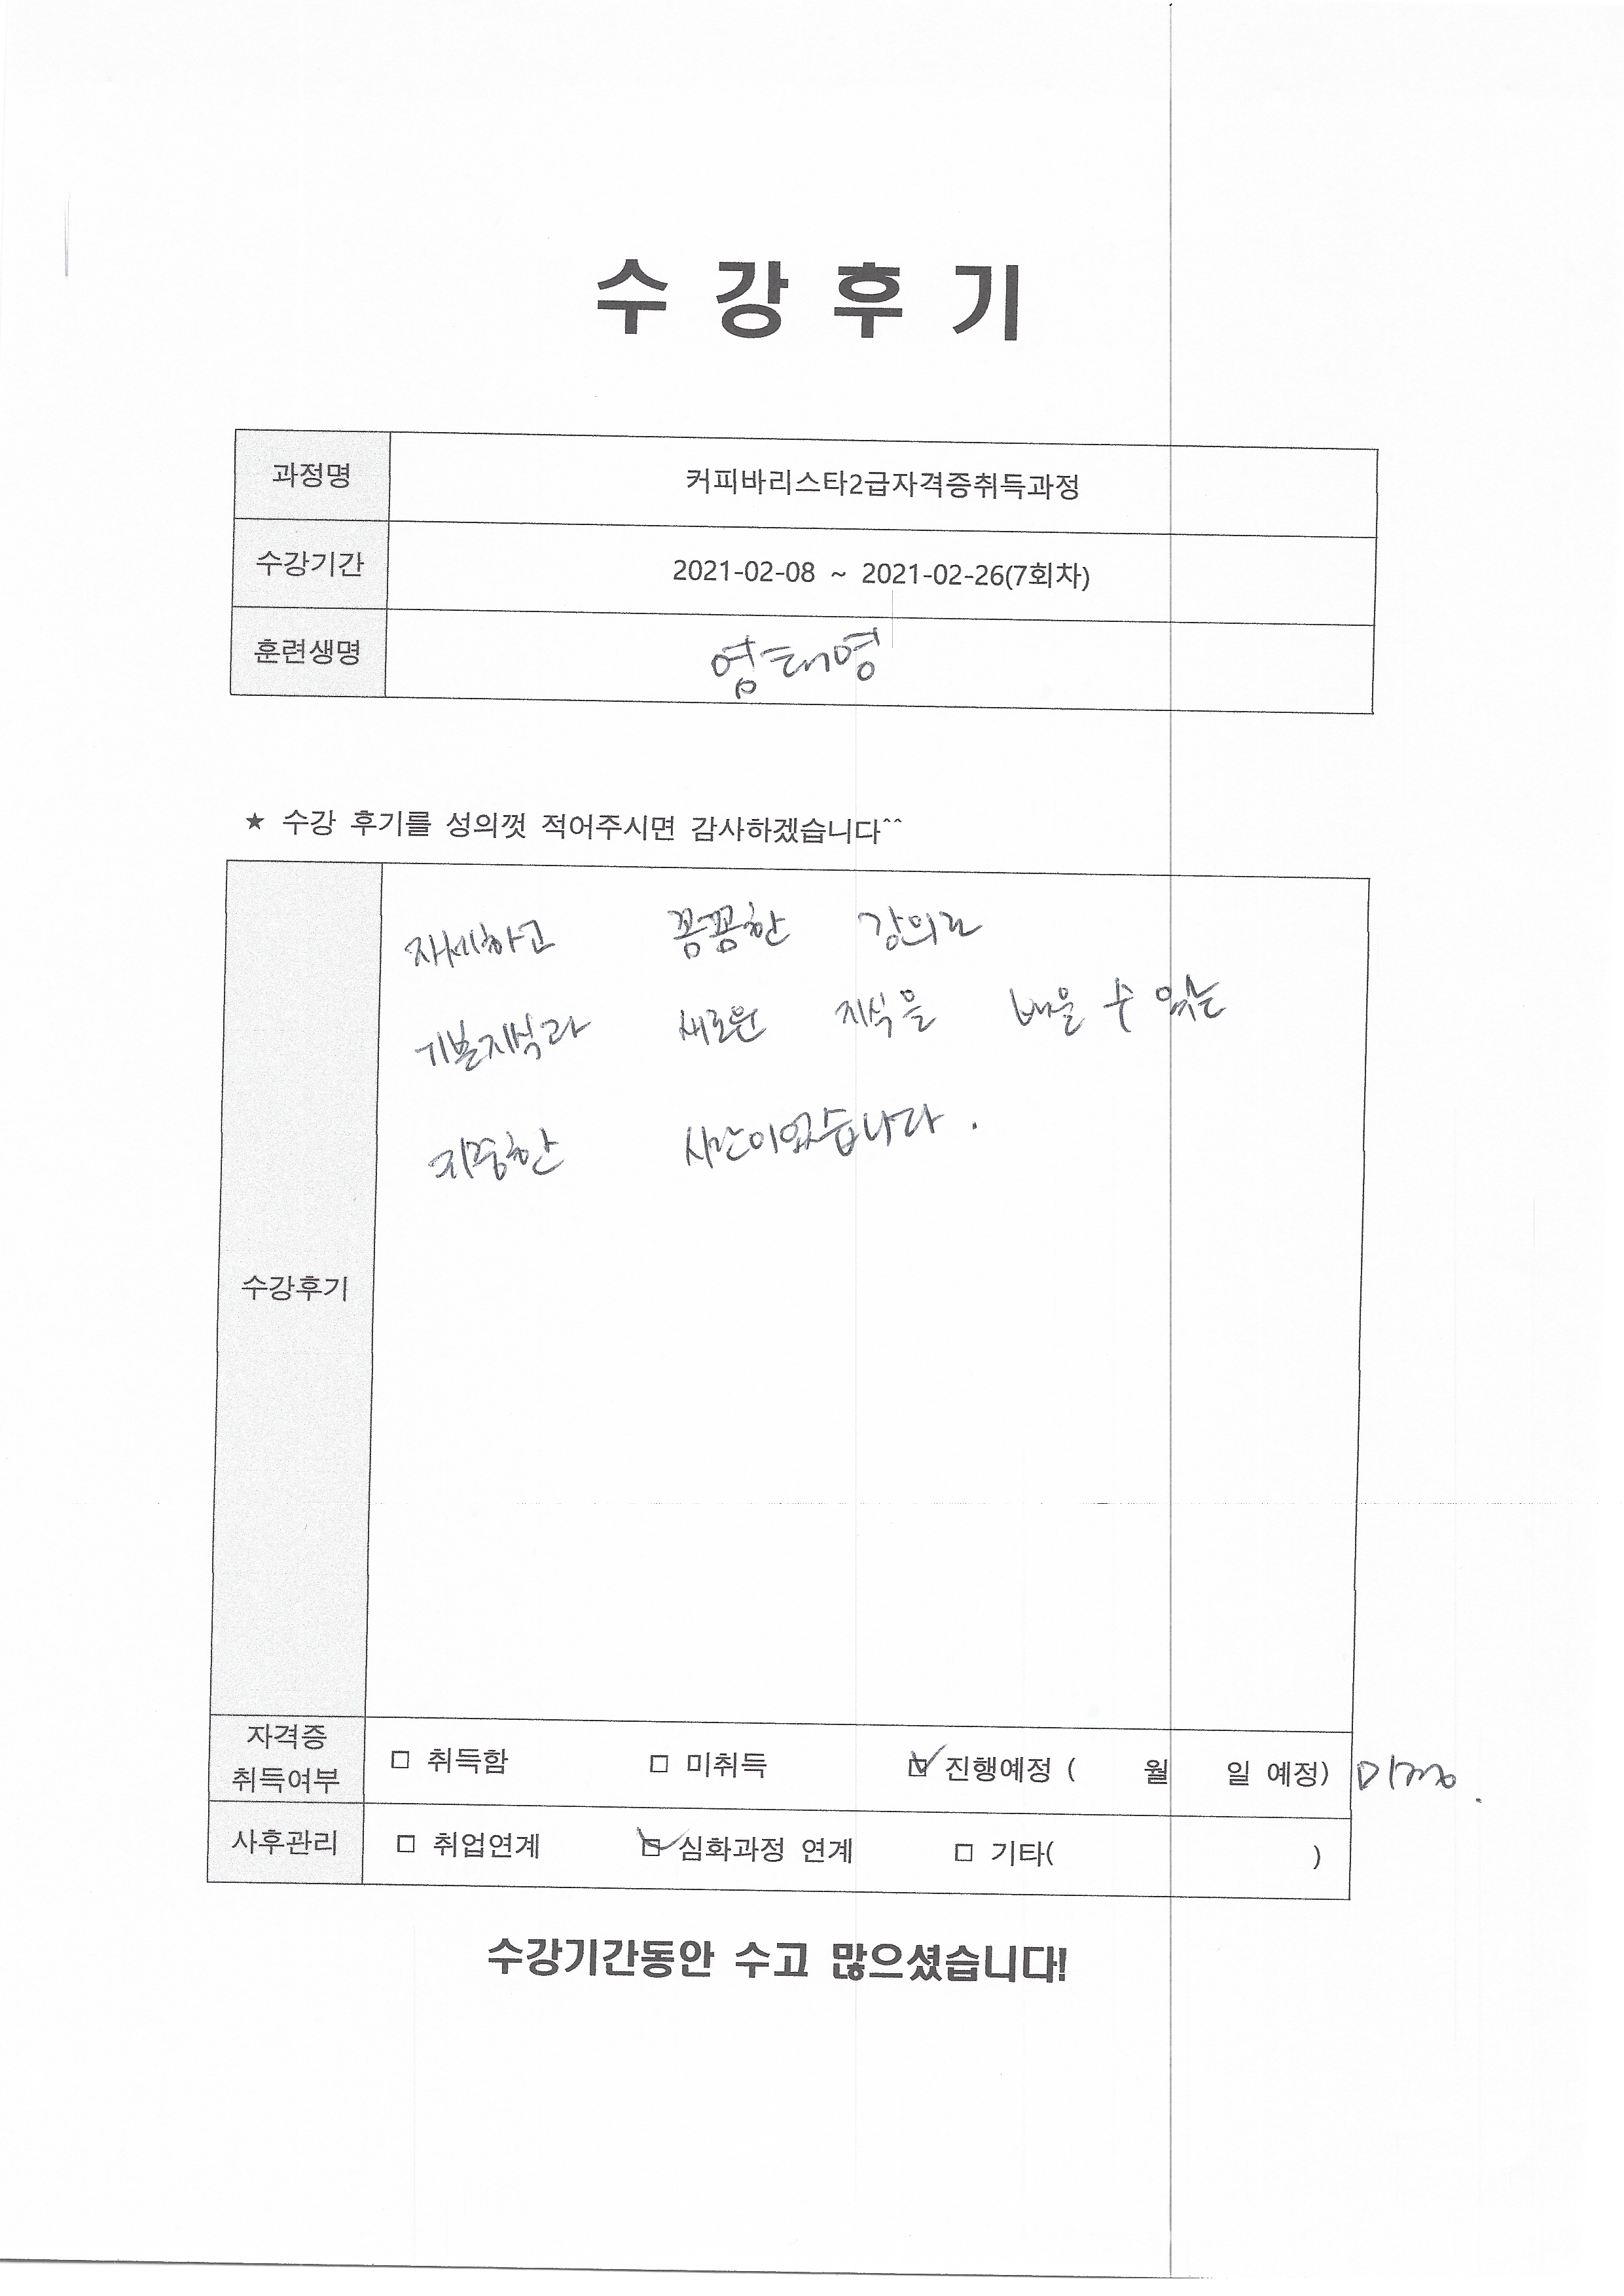 수강후기
과정명 커피바리스타2급자격증취득과정
수강기간 2021-02-08 ~ 2021-02-26(7회차)
훈련생명 염태영
★ 수강 후기를 성의껏 적어주시면 감사하겠습니다^^
자세하고 꼼꼼한 강의로
기본지식과 새로운 지식을 배울 수 있는
귀중한 시간이었습니다.
수강후기
자격증
취득여부 □ 취득함 □ 미취득 ☑ 진행예정 ( 월 일 예정) 미정.
사후관리 □ 취업연계 ☑ 심화과정 연계 □ 기타( )
수강기간동안 수고 많으셨습니다!